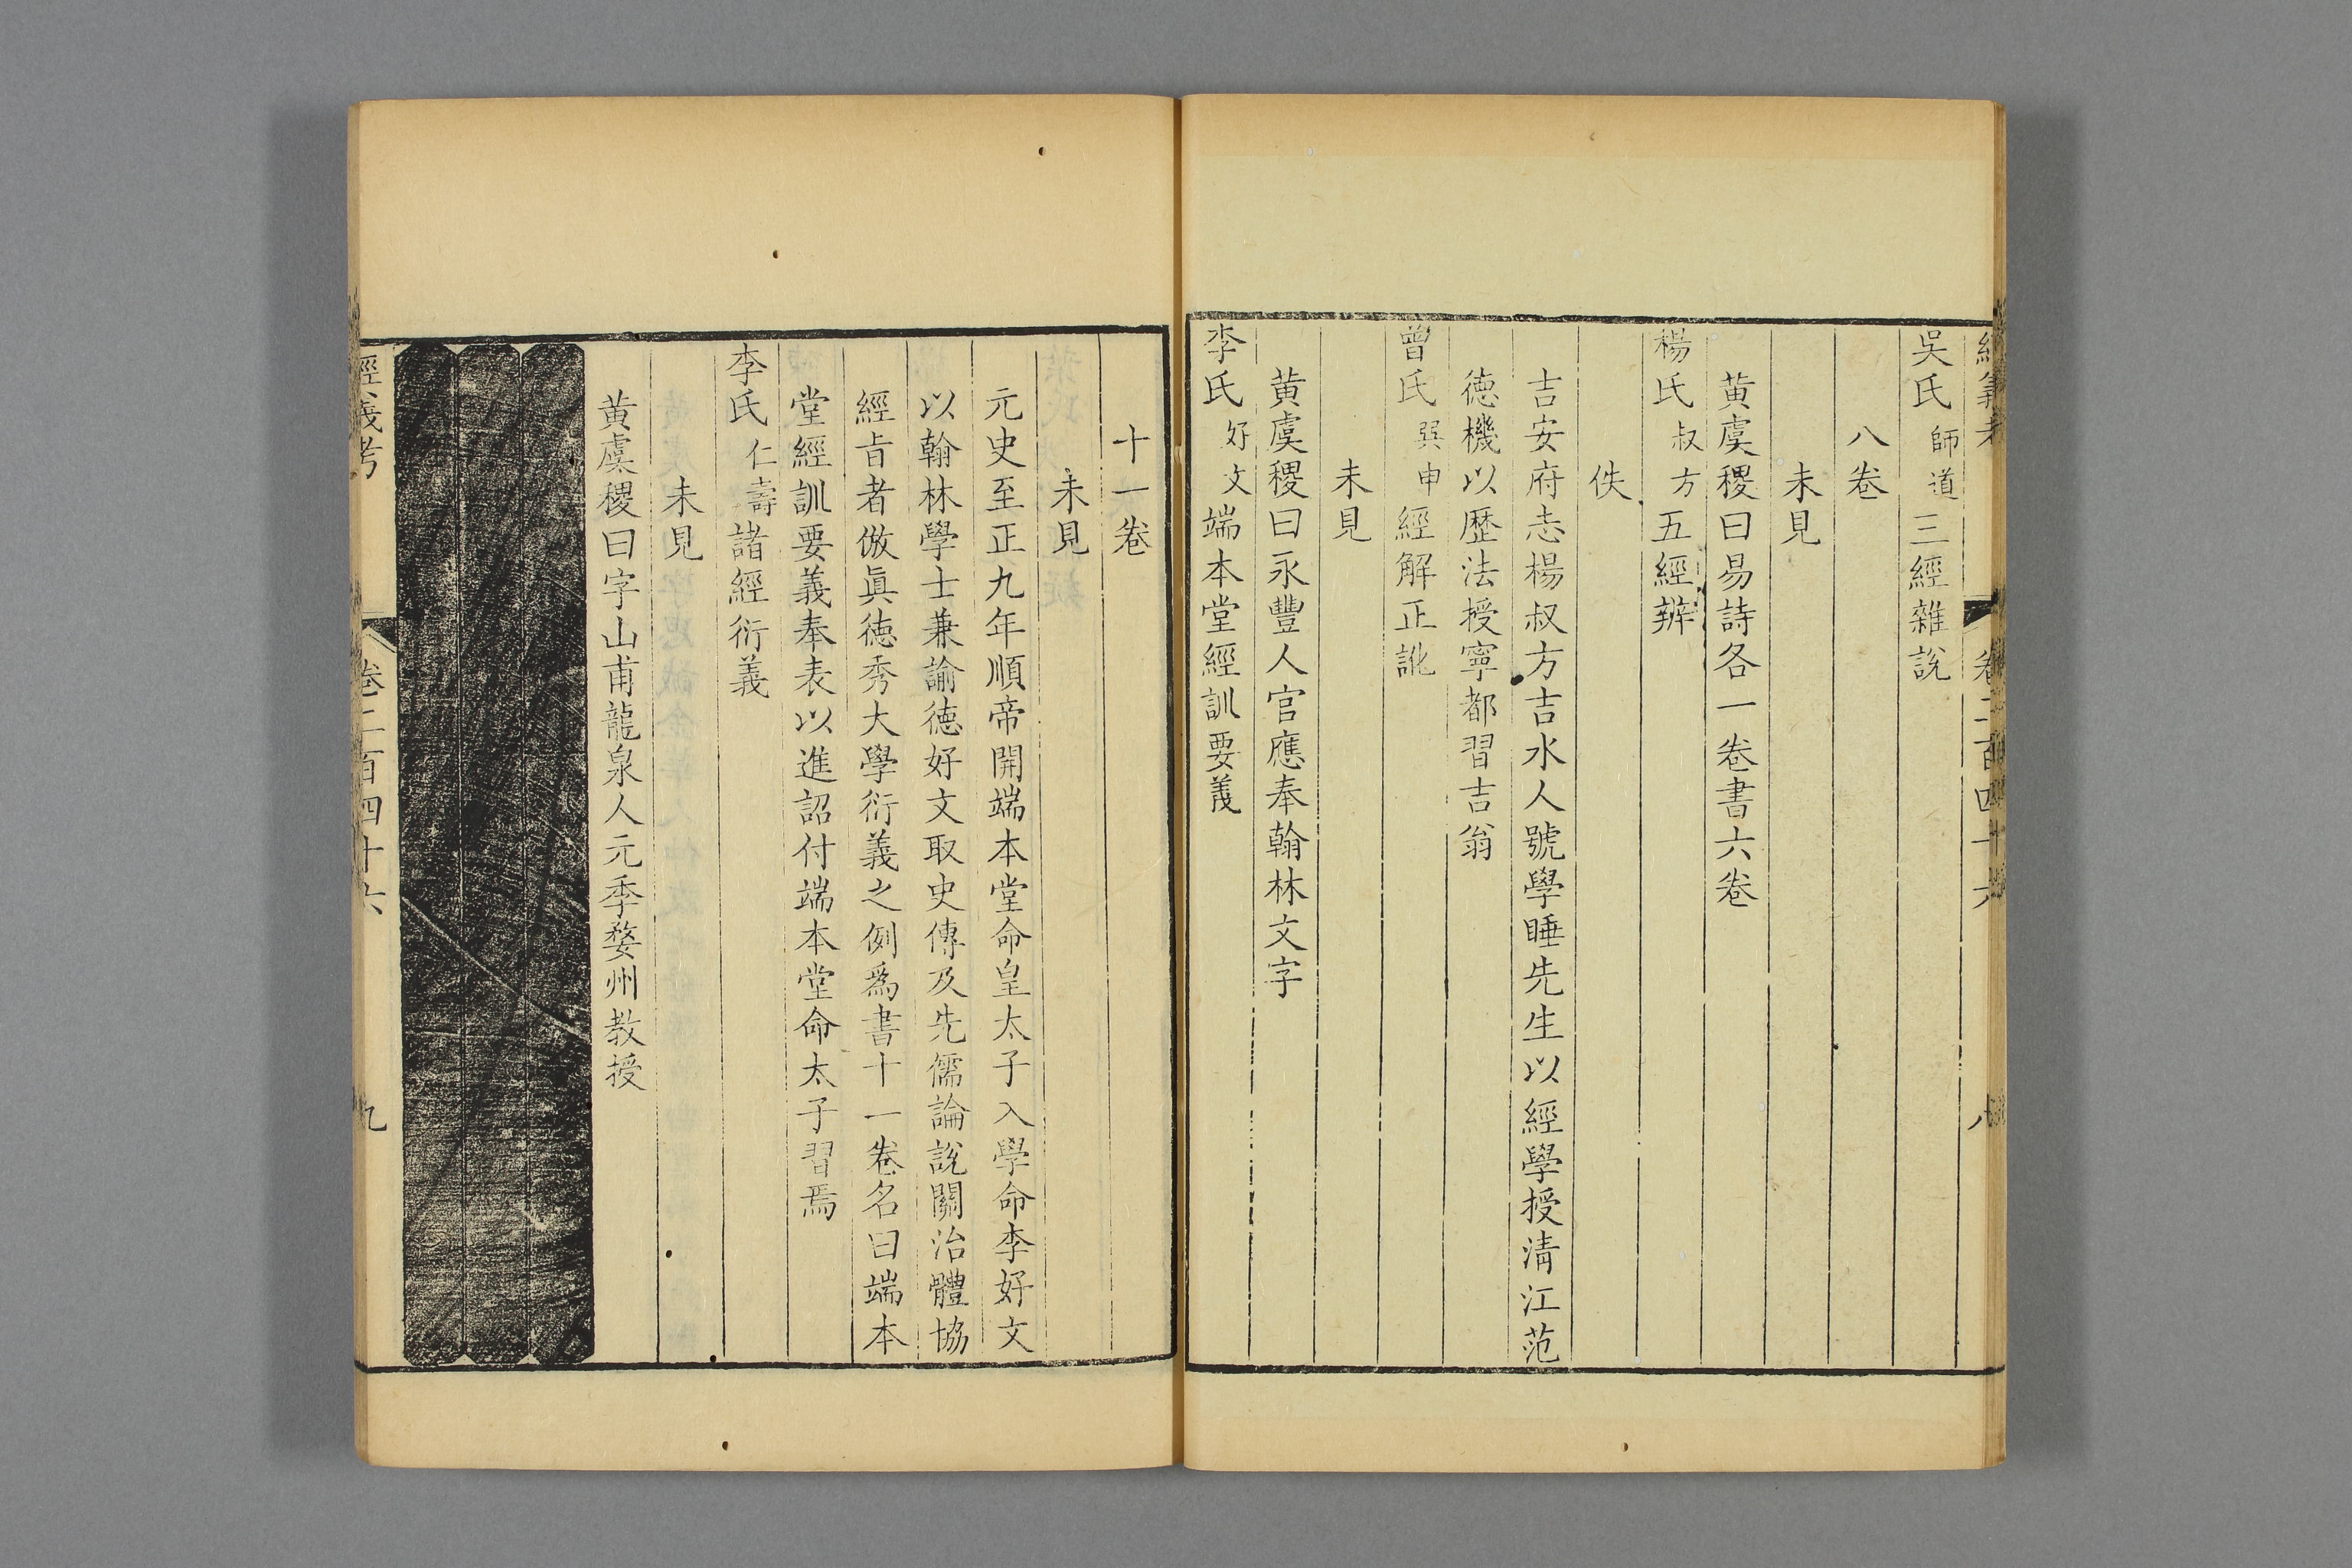 經義考 卷二百四十六 八
吳氏師道三經雜說
八卷
未見
黄虞稷曰易詩各一卷書六卷
楊氏叔方五經辨
佚
吉安府志楊叔方吉水人號學睡先生以經學授淸江范
德機以歴法授寧都習吉翁
曾氏巽申經解正訛
未見
黄虞稷曰永豐人官應奉翰林文字
李氏好文端本堂經訓要義
十一卷
未見
元史至正九年順帝開端本堂命皇太子入學命李好文
以翰林學士兼諭德好文取史傳及先儒論說關治體協
經旨者倣眞德秀大學衍義之例爲書十一卷名曰端本
堂經訓要義奉表以進詔付端本堂命太子習焉
李氏仁壽諸經衍義
未見
黄虞稷曰字山甫龍泉人元季婺州教授
經義考 卷二百四十六 九